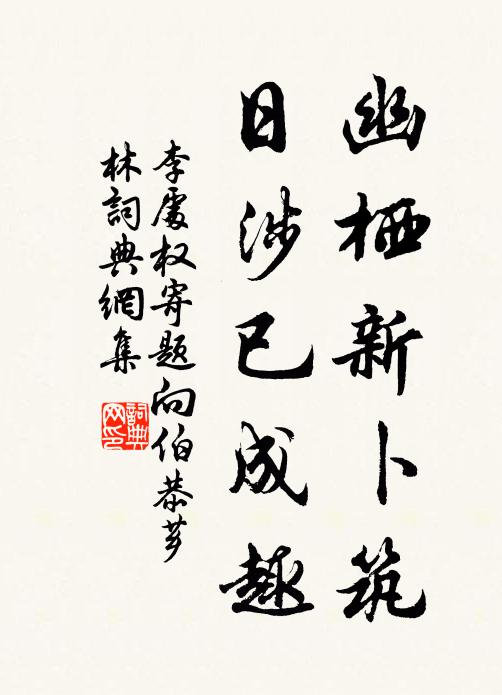 幽栖新卜筑
日涉已成趣
李处权寄题向伯恭芗
林词典網集
詞典
网印